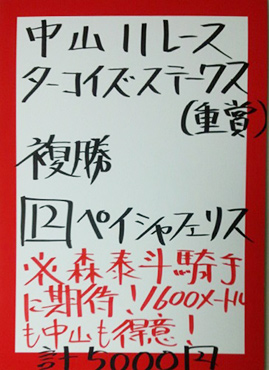 中山11レース
ターコイズステークス
(重賞)
複勝
12 ペイシャフェリス
※森泰斗騎手
に期待!1600メートル
も中山も得意!
計5000円